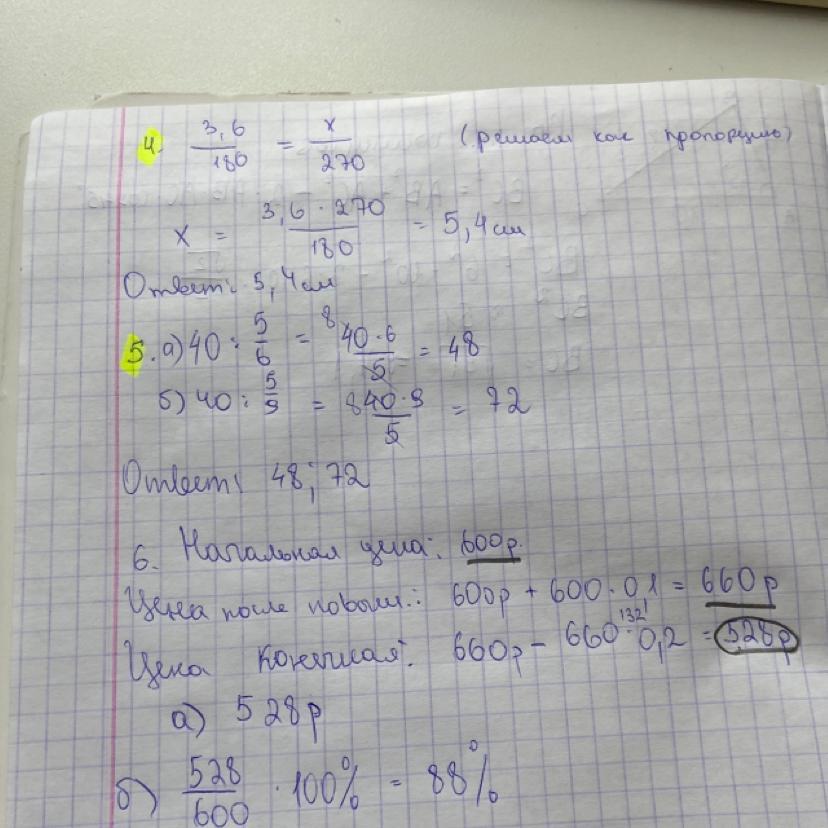 4. 3,6/180 = x/270 (решаем как пропорцию)
x = 3,6 · 270/180 = 5,4см
Ответ: 5,4см
5. а) 40 : 5/6 = 8 40·6/5 = 48
б) 40 : 5/9 = 8 40·9/5 = 72
Ответ: 48; 72
6. Начальная цена: 600р.
Цена после повыш.: 600р + 600·0,1 = 660р
Цена конечная: 660р - 660·0,2 = 528р
132
а) 528р
б) 528/600 · 100% = 88%